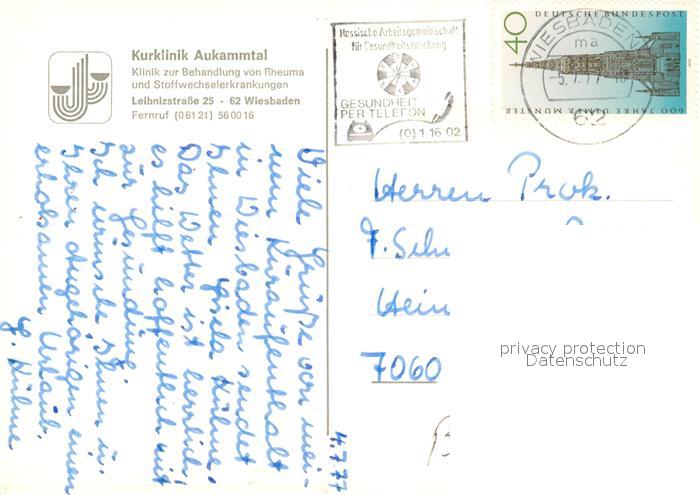 Kurklinik Aukammtal
Klinik zur Behandlung von Rheuma
und Stoffwechselerkrankungen
Leibnizstraße 25 · 62 Wiesbaden
Fernruf (0 61 21) 56 00 16
Hessische Arbeitsgemeinschaft
für Gesundheitserziehung
GESUNDHEIT
PER TELEFON
(0) 1 16 02
40 DEUTSCHE BUNDESPOST
600 JAHRE ULMER MÜNSTER
WIESBADEN
ma
-5.7.77
62
Viele Grüße von mei-
nem Kuraufenthalt
in Wiesbaden sendet
Ihnen Gisela Kühne.
Das Wetter ist herrlich,
es hilft hoffentlich mit
zur Gesundung.
Ich wünsche Ihnen u.
Ihren Angehörigen einen
erholsamen Urlaub.
G. Kühne
4.7.77
Herren Prok.
Hein
7060
privacy protection
Datenschutz